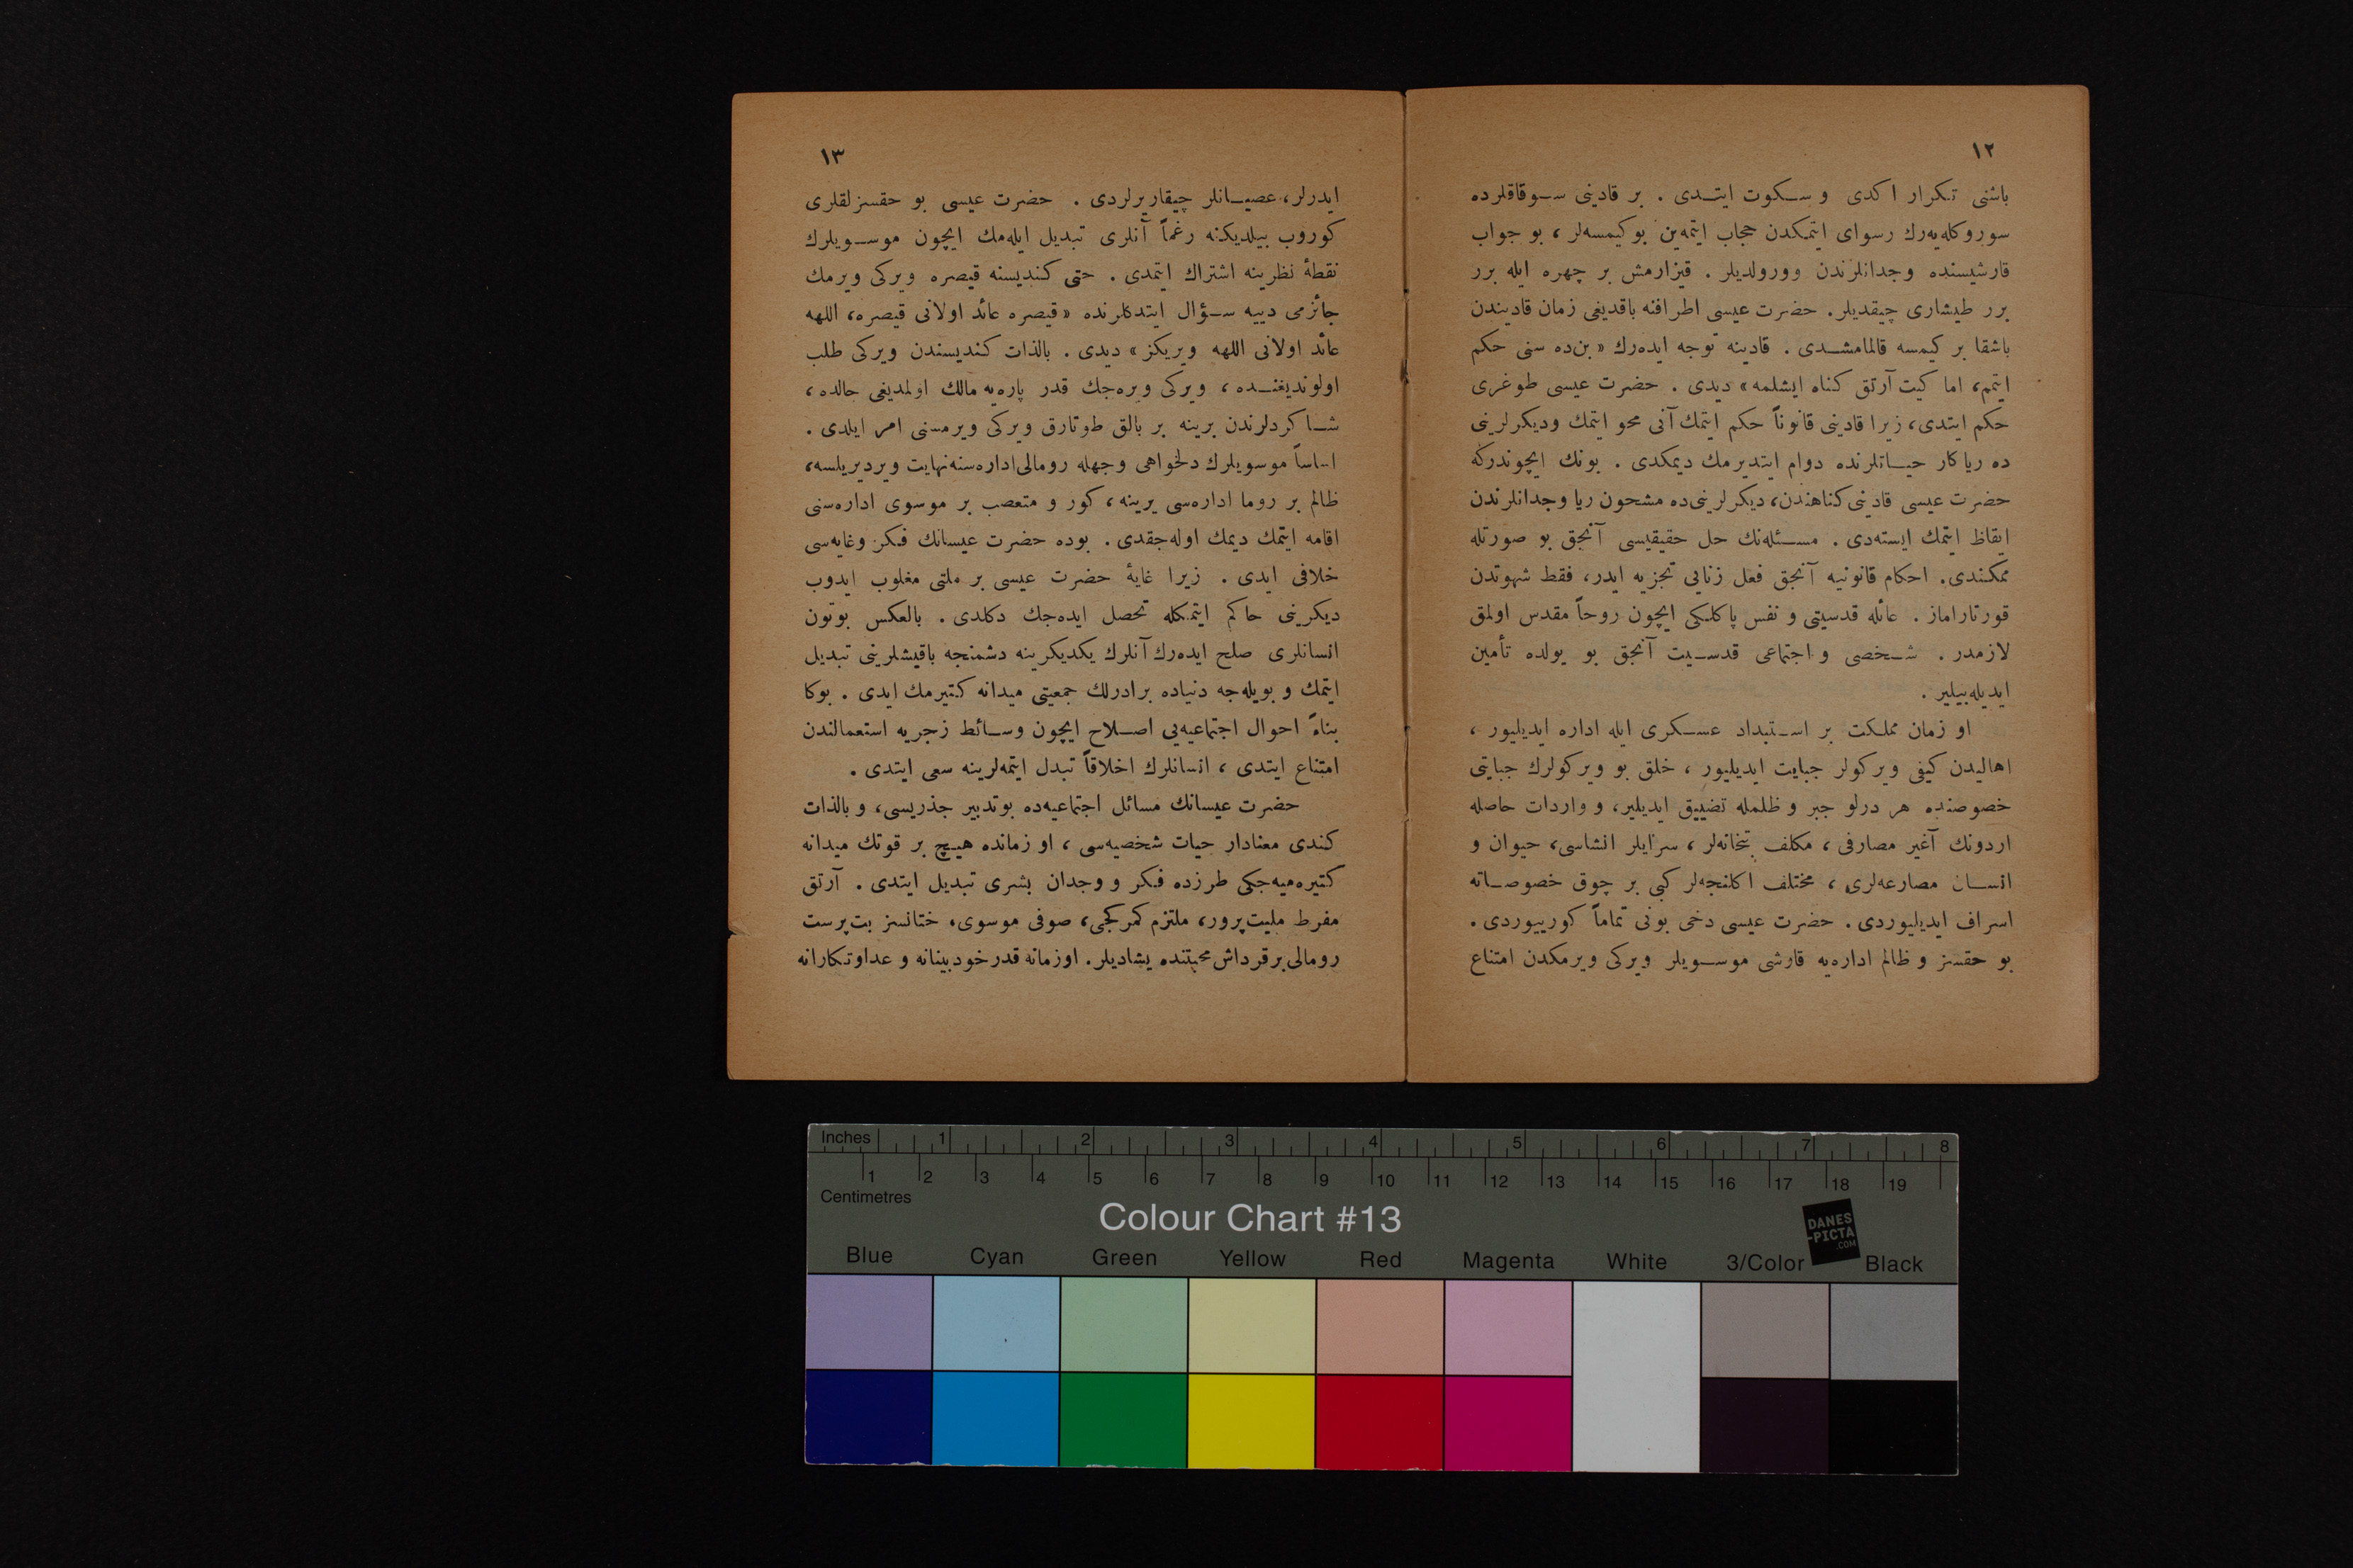 ١٢
باشنی تكرار اكدی و سكوت ایتدی . بر قادینی سوقاقلرده
سوروكله‌یه‌رك رسوای ایتمكدن حجاب ایتمه‌ین بوكیمسه‌لر ، بو جواب
قارشیسنده وجدانلرندن وورولدیلر . قیزارمش بر چهره ایله برر
برر طیشاری چیقدیلر . حضرت عیسی اطرافنه باقدیغی زمان قادیندن
باشقا بر كیمسه قالمامشدی . قادینه توجه ایده‌رك « بن‌ده سنی حكم
ایتمم، اما كیت آرتق كناه ایشلمه » دیدی . حضرت عیسی طوغری
حكم ایتدی، زیرا قادینی قانوناً حكم ایتمك آنی محو ایتمك ودیكرلرینی
ده ریاكار حیاتلرنده دوام ایتدیرمك دیمكدی . بونك ایچوندركه
حضرت عیسی قادینی كناهندن، دیكرلرینی‌ده مشحون ریا وجدانلرندن
ایقاظ ایتمك ایسته‌دی . مسئله‌نك حل حقیقیسی آنجق بو صورتله
ممكندی. احكام قانونیه آنجق فعل زنایی تجزیه ایدر، فقط شهوتدن
قورتاراماز . عائله قدسیتی و نفس پاكلكی ایچون روحاً مقدس اولمق
لازمدر . شخصی و اجتماعی قدسیت آنجق بو یولده تأمین
ایدیله‌بیلیر .
او زمان مملكت بر استبداد عسكری ایله اداره ایدیلیور ،
اهالیدن كیفی ویركولر جبایت ایدیلیور ، خلق بو ویركولرك جبایتی
خصوصنده هر درلو جبر و ظلمله تضییق ایدیلیر، و واردات حاصله
اردونك آغیر مصارفی ، مكلف بتخانه‌لر ، سرایلر انشاسی، حیوان و
انسان مصارعه‌لری ، مختلف اكلنجه‌لر كبی بر چوق خصوصاته
اسراف ایدیلیوردی . حضرت عیسی دخی بونی تماماً كورییوردی .
بو حقسز و ظالم اداره‌یه قارشی موسویلر ویركی ویرمكدن امتناع
١٣
ایدرلر، عصیانلر چیقاریرلردی . حضرت عیسی بو حقسزلقلری
كوروب بیلدیكنه رغماً آنلری تبدیل ایله‌مك ایچون موسویلرك
نقطهٔ نظرینه اشتراك ایتمدی . حتی كندیسنه قیصره ویركی ویرمك
جائزمی دییه سؤال ایتدكلرنده « قیصره عائد اولانی قیصره، اللهه
عائد اولانی اللهه ویریكز » دیدی . بالذات كندیسندن ویركی طلب
اولوندیغنده ، ویركی ویره‌جك قدر پاره‌یه مالك اولمدیغی حالده ،
شاكردلرندن برینه بر بالق طوتارق ویركی ویرمسنی امر ایلدی .
اساساً موسویلرك دلخواهی وجهله رومالی‌اداره‌سنه‌نهایت ویردیریلسه،
ظالم بر روما اداره‌سی یرینه ، كور و متعصب بر موسوی اداره‌سنی
اقامه ایتمك دیمك اوله‌جقدی . بوده حضرت عیسانك فكر وغایه‌سی
خلافی ایدی . زیرا غایهٔ حضرت عیسی بر ملتی مغلوب ایدوب
دیكرینی حاكم ایتمكله تحصل ایده‌جك دكلدی . بالعكس بوتون
انسانلری صلح ایده‌رك آنلرك یكدیكرینه دشمنجه باقیشلرینی تبدیل
ایتمك و بویله‌جه دنیاده برادرلك جمعیتی میدانه كتیرمك ایدی . بوكا
بناءً احوال اجتماعیه‌یی اصلاح ایچون وسائط زجریه استعمالندن
امتناع ایتدی ، انسانلرك اخلاقاً تبدل ایتمه‌لرینه سعی ایتدی .
حضرت عیسانك مسائل اجتماعیه‌ده بوتدبیر جذریسی، و بالذات
كندی معنادار حیات شخصیه‌سی ، او زمانده هیچ بر قوتك میدانه
كتیره‌میه‌جكی طرزده فكر و وجدان بشری تبدیل ایتدی . آرتق
مفرط ملیت‌پرور، ملتزم كمركجی، صوفی موسوی، ختانسز بت‌پرست
رومالی‌برقرداش‌محبتنده یشادیلر. اوزمانه قدرخودبینانه و عداوتكارانه
Inches 1 2 3 4 5 6 7 8
1 2 3 4 5 6 7 8 9 10 11 12 13 14 15 16 17 18 19
Centimetres
Colour Chart #13
DANES
-PICTA
.COM
Blue Cyan Green Yellow Red Magenta White 3/Color Black